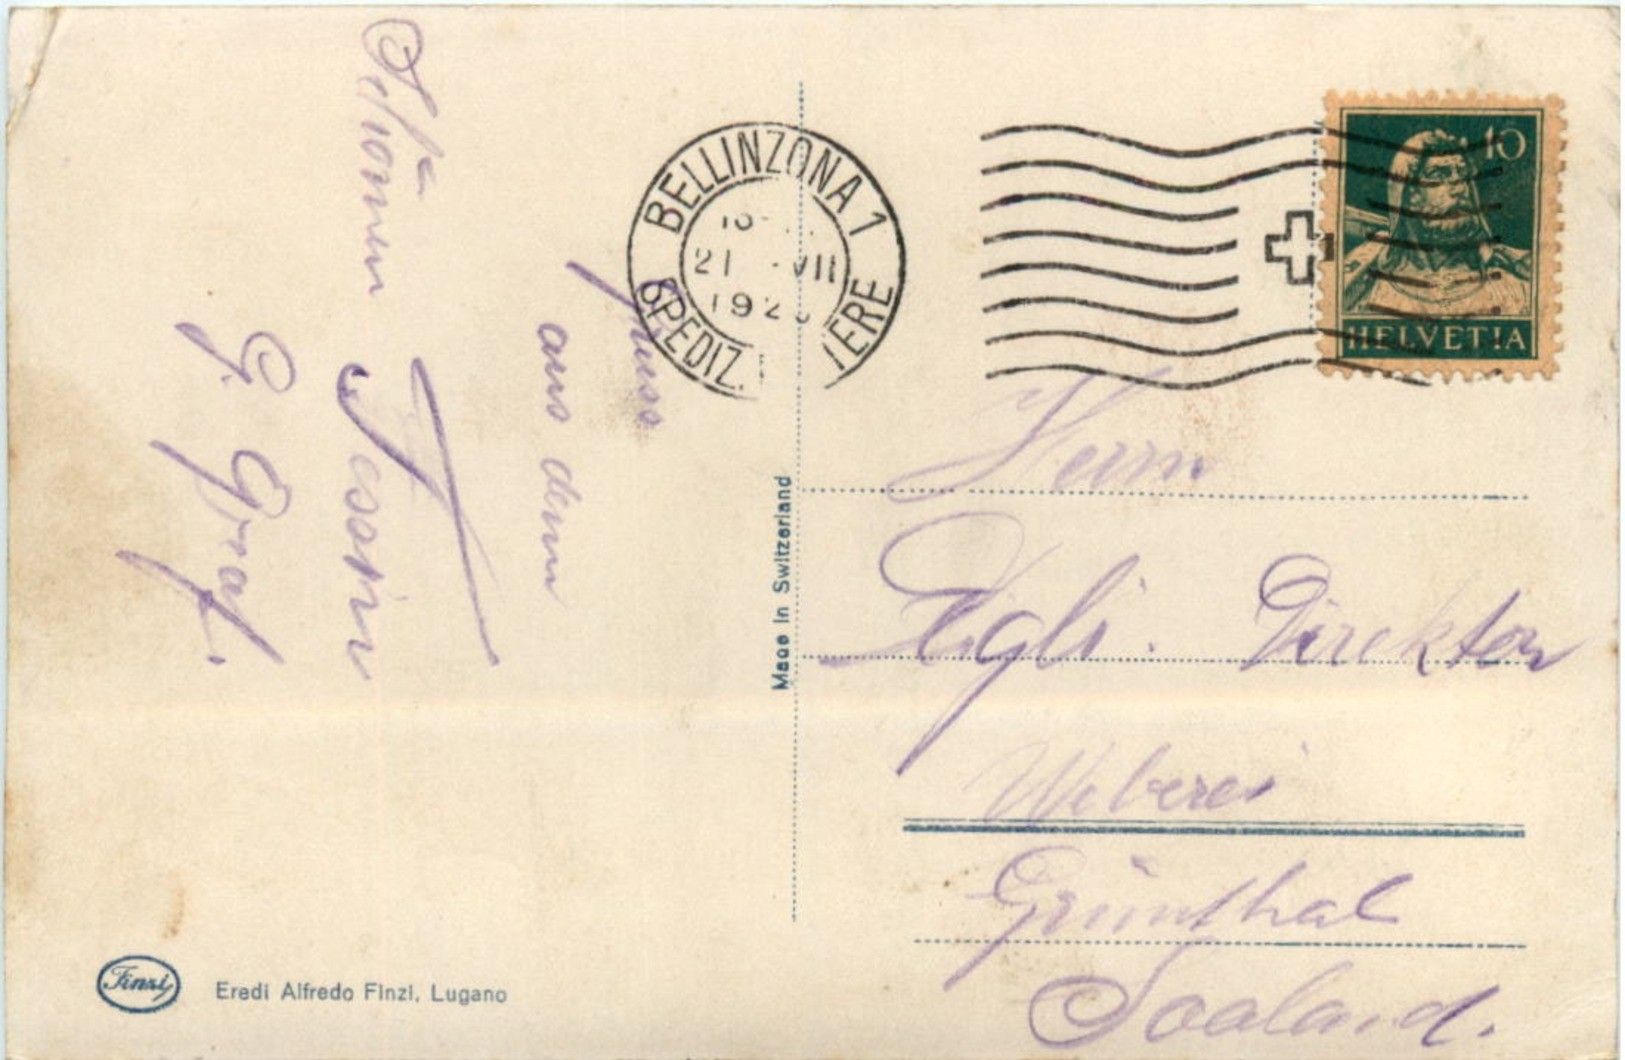 Schönen
Gruss
aus dem
Tessin
G. Graf.
BELLINZONA 1
21 VII
192
SPEDIZ. LETTERE
10
HELVETIA
Made in Switzerland
Herrn
Egli. Direktor
Weberei
Grünthal
Saaland.
Finzi
Eredi Alfredo Finzi, Lugano